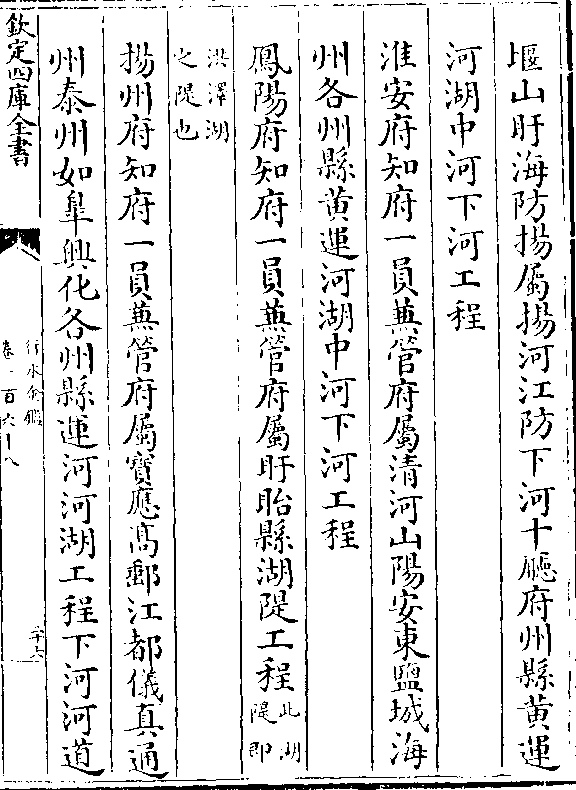 堰山盱海防揚屬揚河江防下河十廳府州縣黃運
河湖中河下河工程
淮安府知府一員兼管府屬清河山陽安東鹽城海
州各州縣黃運河湖中河下河工程
鳳陽府知府一員兼管府屬盱眙縣湖隄工程此湖隄即
洪澤湖之隄也
揚州府知府一員兼管府屬寶應髙郵江都儀真通
州泰州如臯興化各州縣運河河湖工程下河河道
欽定四庫全書
行水金鑑
卷一百六十八
二十六